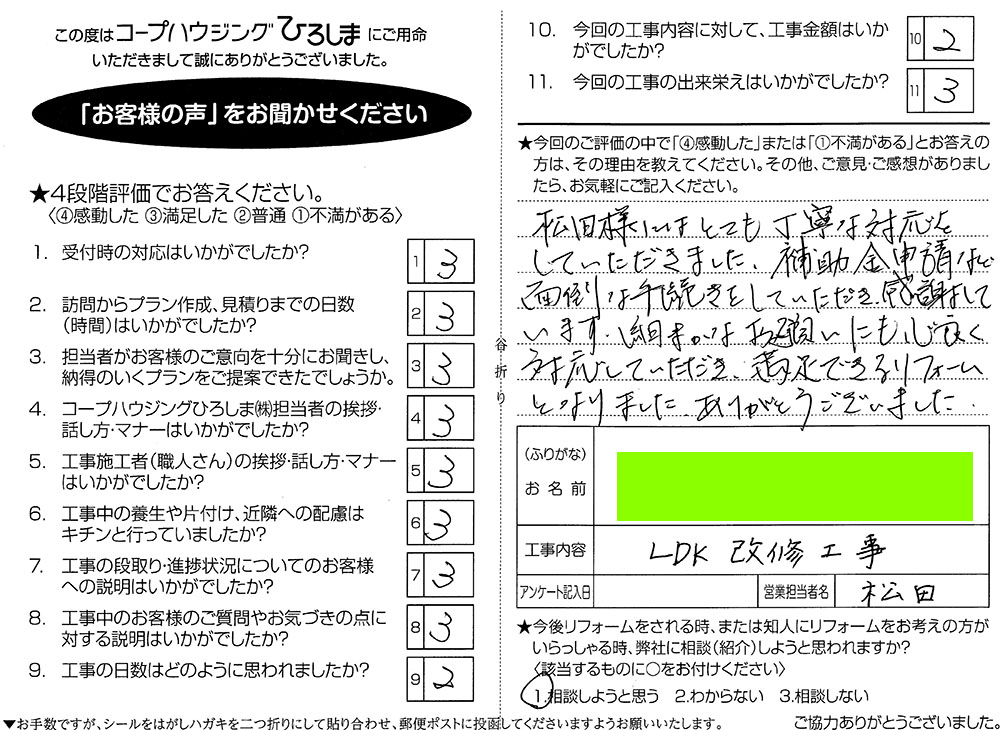 この度はコープハウジングひろしまにご用命
いただきまして誠にありがとうございました。
「お客様の声」をお聞かせください
★4段階評価でお答えください。
〈④感動した ③満足した ②普通 ①不満がある〉
1. 受付時の対応はいかがでしたか?
1 3
2. 訪問からプラン作成、見積りまでの日数
(時間)はいかがでしたか?
2 3
3. 担当者がお客様のご意向を十分にお聞きし、
納得のいくプランをご提案できたでしょうか。
3 3
4. コープハウジングひろしま㈱担当者の挨拶・
話し方・マナーはいかがでしたか?
4 3
5. 工事施工者(職人さん)の挨拶・話し方・マナー
はいかがでしたか?
5 3
6. 工事中の養生や片付け、近隣への配慮は
キチンと行っていましたか?
6 3
7. 工事の段取り・進捗状況についてのお客様
への説明はいかがでしたか?
7 3
8. 工事中のお客様のご質問やお気づきの点に
対する説明はいかがでしたか?
8 3
9. 工事の日数はどのように思われましたか?
9 2
▼お手数ですが、シールをはがしハガキを二つ折りにして貼り合わせ、郵便ポストに投函してくださいますようお願いいたします。
谷折り
10. 今回の工事内容に対して、工事金額はいか
がでしたか?
10 2
11. 今回の工事の出来栄えはいかがでしたか?
11 3
★今回のご評価の中で「④感動した」または「①不満がある」とお答えの
方は、その理由を教えてください。その他、ご意見・ご感想がありまし
たら、お気軽にご記入ください。
松田様にはとても丁寧な対応を
していただきました。補助金申請など
面倒な手続きをしていただき、感謝して
います。細まかなお願いにも心良く
対応していただき、満足できるリフォーム
となりました。ありがとうございました。
(ふりがな)
お名前
工事内容
LDK 改修工事
アンケート記入日
営業担当者名
松田
★今後リフォームをされる時、または知人にリフォームをお考えの方が
いらっしゃる時、弊社に相談(紹介)しようと思われますか?
〈該当するものに○をお付けください〉
1.相談しようと思う 2.わからない 3.相談しない
ご協力ありがとうございました。